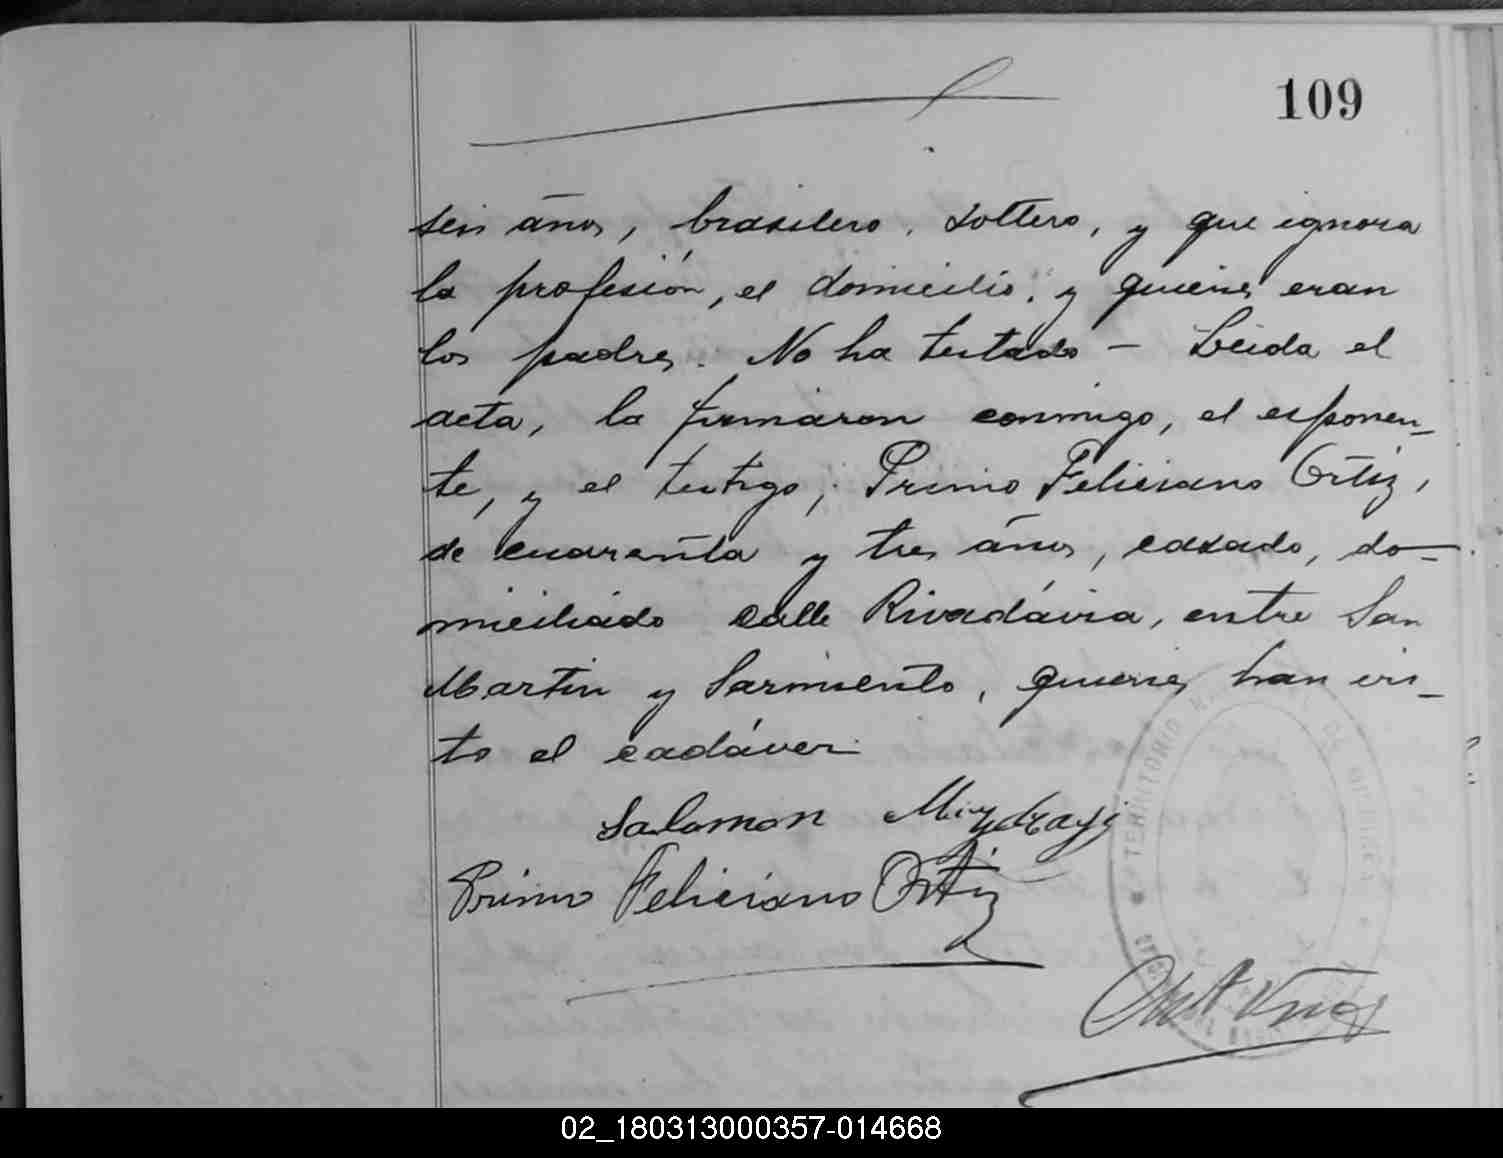 109
seis años, brasilero, soltero, y que ignora
la profesión, el domicilio, y quienes eran
los padres. No ha testado — Leída el
acta, la firmaron conmigo, el esponen-
te, y el testigo; Primo Feliciano Ortiz,
de cuarenta y tres años, casado, do-
miciliado calle Rivadávia, entre San
Martin y Sarmiento, quienes han vis-
to el cadáver.
Salomon
Primo Feliciano Ortiz
TERRITORIO DE
02_180313000357-014668